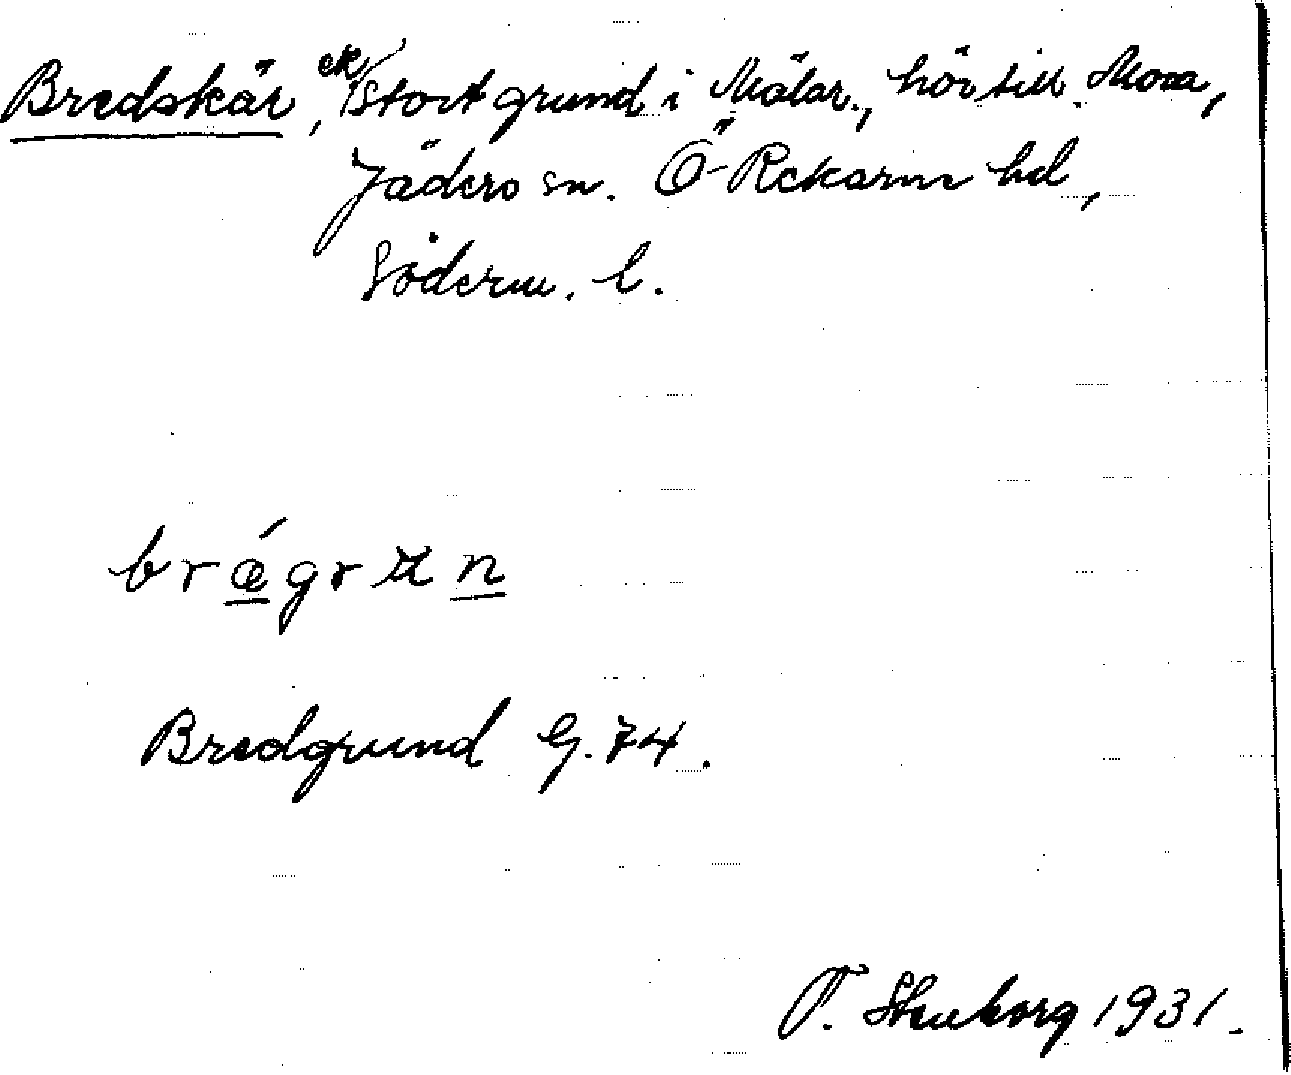 Bredskär, ett stort grund i Mälar., hör till Mora,
Jäders sn. Ö Rekarne hd,
Söderm. l.
brǽgrun
Bredgrund G. 74.
T. Stenborg 1931.